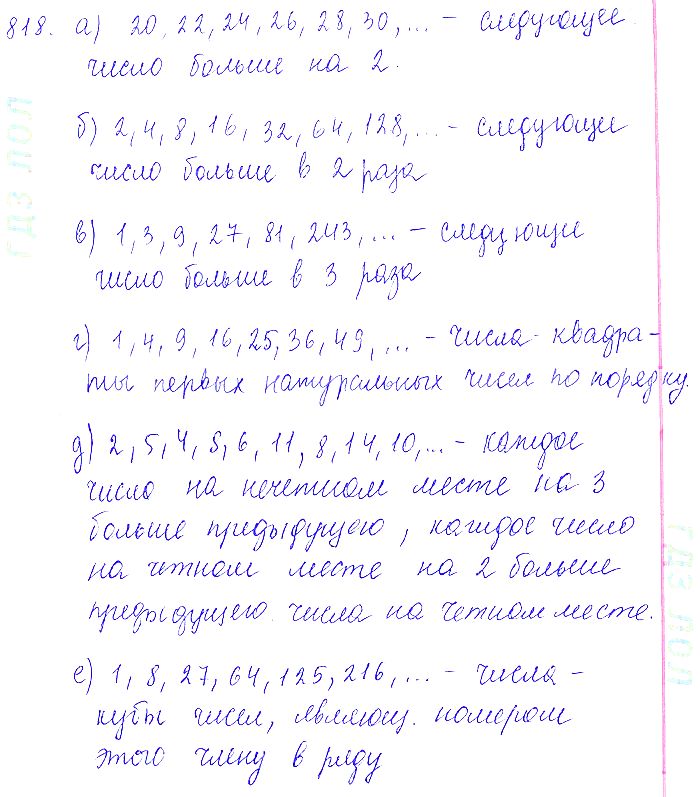 818. а) 20, 22, 24, 26, 28, 30, ... – следующее
число больше на 2.
б) 2, 4, 8, 16, 32, 64, 128, ... – следующее
число больше в 2 раза
в) 1, 3, 9, 27, 81, 243, ... – следующее
число больше в 3 раза
г) 1, 4, 9, 16, 25, 36, 49, ... – числа квадра-
ты первых натуральных чисел по порядку.
д) 2, 5, 4, 8, 6, 11, 8, 14, 10, ... – каждое
число на нечетном месте на 3
больше предыдущего, каждое число
на четном месте на 2 больше
предыдущего числа на четном месте.
е) 1, 8, 27, 64, 125, 216, ... – числа –
кубы чисел, являющ. номером
этого члену в ряду
ГДЗ ПОЛ
ГДЗ ПОЛ